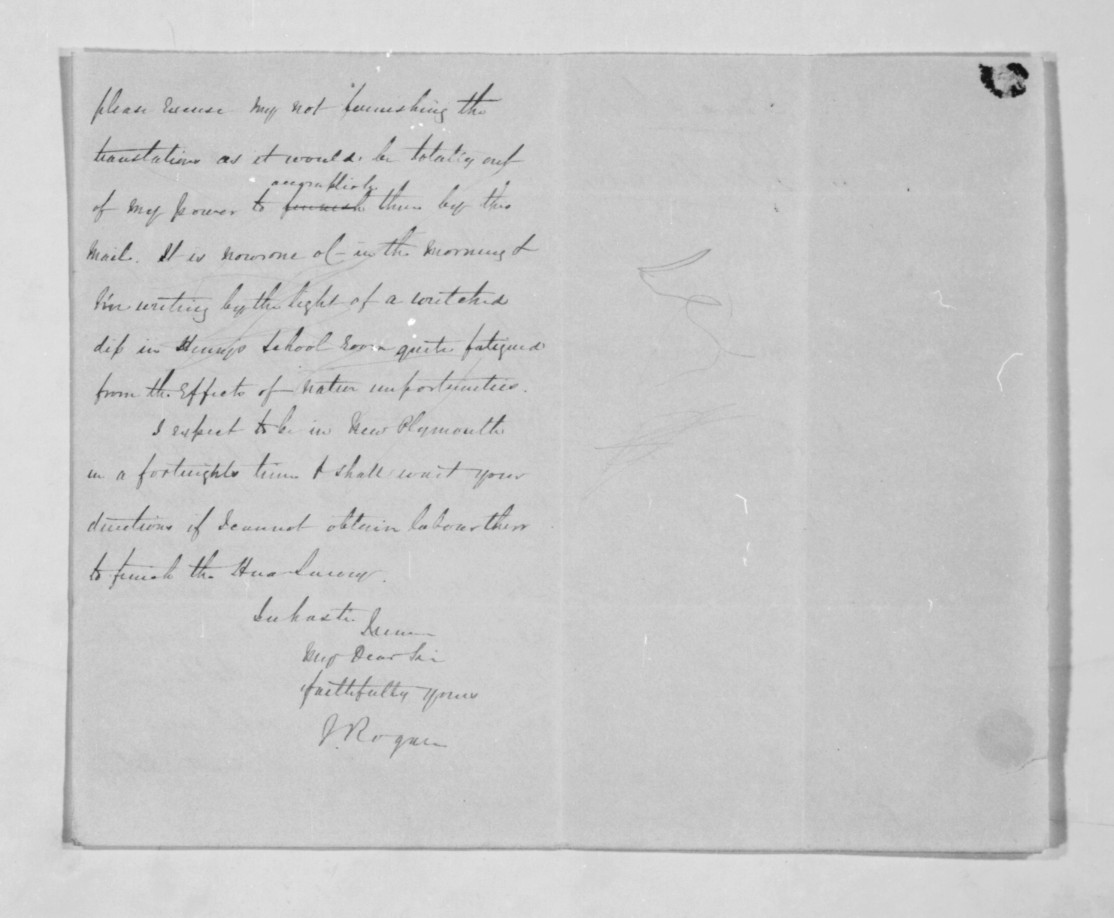 please excuse my not furnishing the
translations as it would be totally out
of my power to furnish them by this
mail. It is now one o(- in the morning &
I'm writing by the light of a wretched
dip in School Room quite fatigued
from the effects of native importunities.
I expect to be in New Plymouth
in a fortnights time & shall wait your
directions if I cannot obtain labour there
to finish the Hua Survey.
In haste
I am
My Dear Sir
faithfully yours
J. Rogan